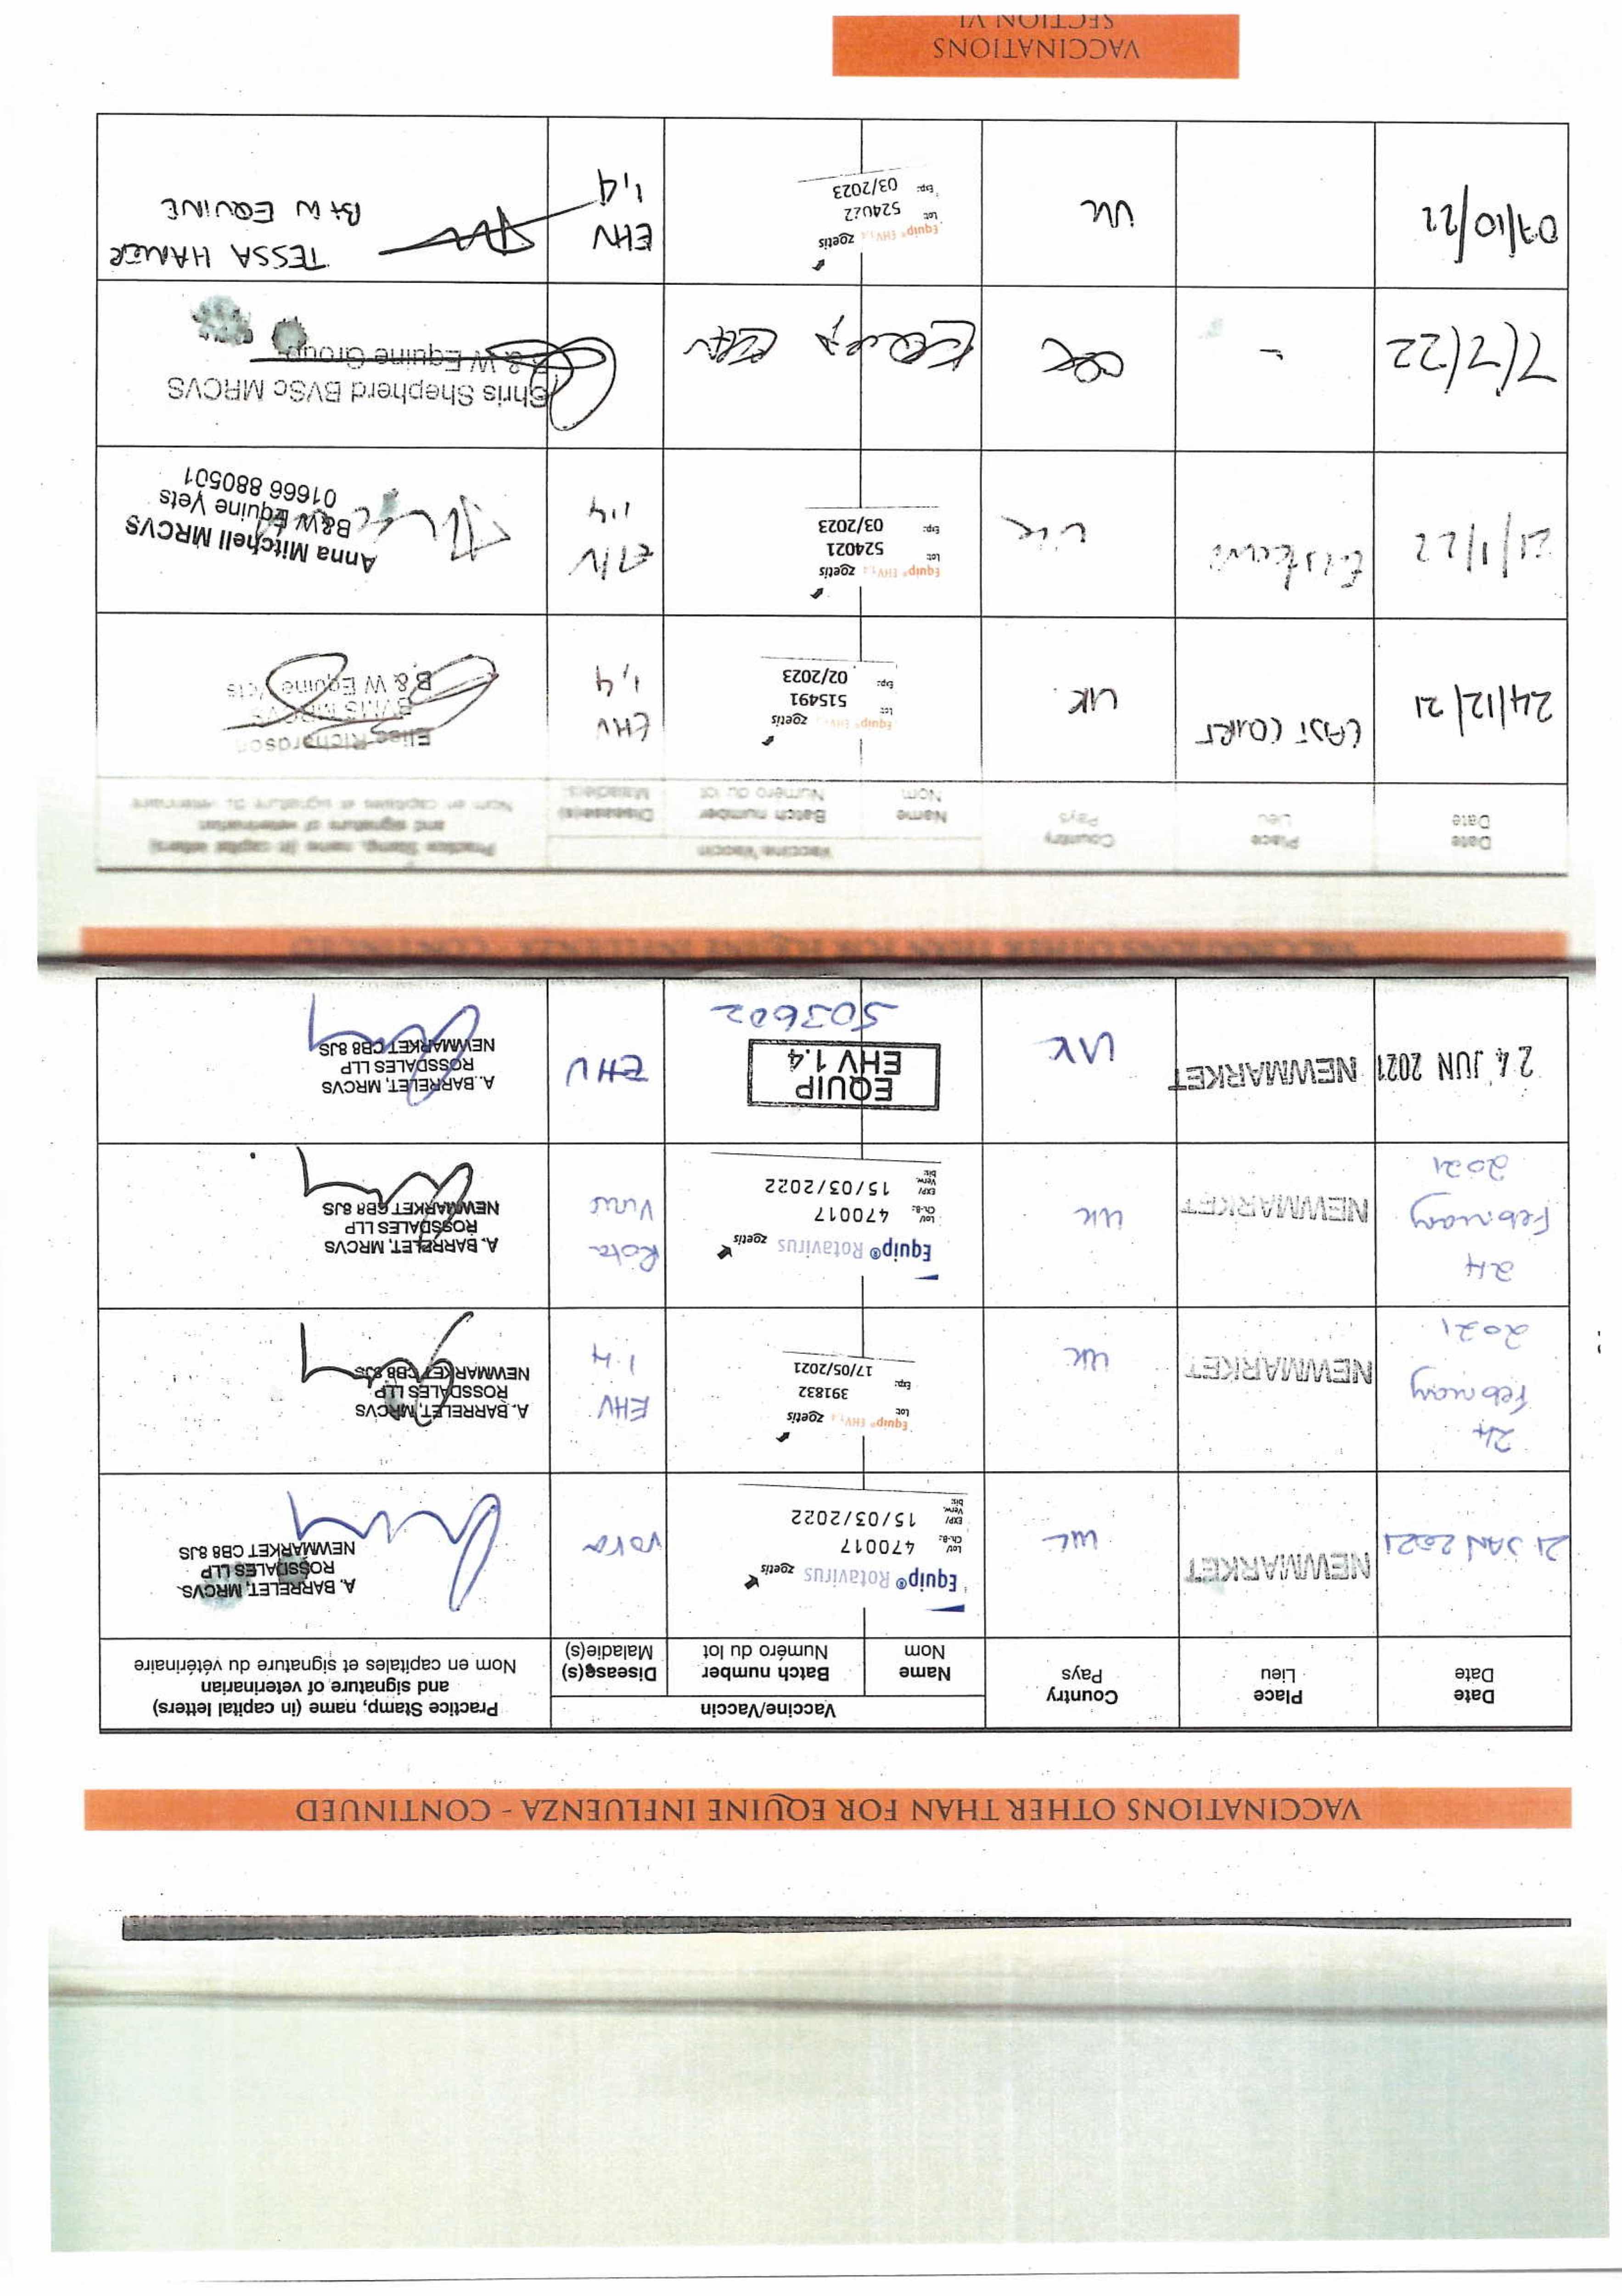 VACCINATIONS OTHER THAN FOR EQUINE INFLUENZA - CONTINUED
Date
Date
Place
Lieu
Country
Pays
Vaccine/Vaccin
Name
Nom
Batch number
Numéro du lot
Disease(s)
Maladie(s)
Practice Stamp, name (in capital letters)
and signature of veterinarian
Nom en capitales et signature du vétérinaire
21 JAN 2021
NEWMARKET
UK
Equip® Rotavirus zoetis
Lot/
Ch.-B.: 470017
EXP/
Verw.
bis: 15/03/2022
A. BARRELET, MRCVS
ROSSDALES LLP
NEWMARKET CB8 8JS
24
February
2021
NEWMARKET
UK
Equip® EHV1,4 zoetis
Lot: 391832
Exp: 17/05/2021
EHV
1.4
A. BARRELET, MRCVS
ROSSDALES LLP
NEWMARKET CB8 8JS
24
February
2021
NEWMARKET
UK
Equip® Rotavirus zoetis
Lot/
Ch.-B.: 470017
EXP/
Verw.
bis: 15/03/2022
Rota
Virus
A. BARRELET, MRCVS
ROSSDALES LLP
NEWMARKET CB8 8JS
24 JUN 2021
NEWMARKET
UK
EQUIP
EHV 1.4
503602
EHV
A. BARRELET, MRCVS
ROSSDALES LLP
NEWMARKET CB8 8JS
VACCINATIONS OTHER THAN FOR EQUINE INFLUENZA - CONTINUED
Date
Date
Place
Lieu
Country
Pays
Vaccine/Vaccin
Name
Nom
Batch number
Numéro du lot
Disease(s)
Maladie(s)
Practice Stamp, name (in capital letters)
and signature of veterinarian
Nom en capitales et signature du vétérinaire
24/12/21
EAST COURT
UK
Equip® EHV1,4 zoetis
Lot: 515491
Exp: 02/2023
EHV
1,4
Elise Richardson
BVMS MRCVS
B & W Equine Vets
21/1/22
UK
Equip® EHV1,4 zoetis
Lot: 524021
Exp: 03/2023
EHV
1,4
Anna Mitchell MRCVS
B&W Equine Vets
01666 880501
7/7/22
-
Chris Shepherd BVSc MRCVS
B & W Equine Group
07/10/22
UK
Equip® EHV1,4 zoetis
Lot: 524022
Exp: 03/2023
EHV
1,4
TESSA HAMER
B+W EQUINE
VACCINATIONS
SECTION VI